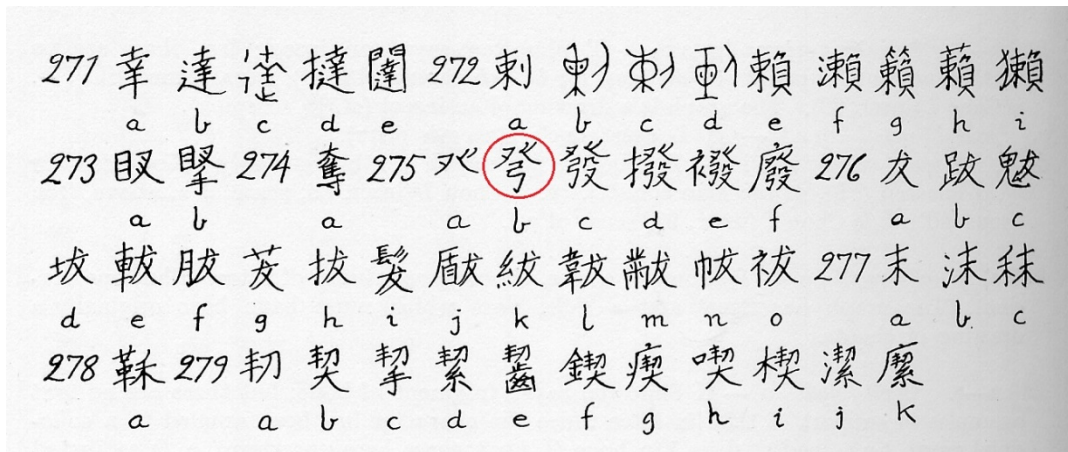 271 羍 達 撻 闥 272 剌 賴 瀨 籟 藾 獺
a b c d e a b c d e f g h i
273 274 奪 275 癶 發 撥 襏 廢 276 犮 跋 魃
a b a a b c d e f a b c
坺 軷 胈 茇 拔 髮 瞂 紱 韍 黻 帗 祓 277 末 沫 秣
d e f g h i j k l m n o a b c
278 靺 279 㓞 契 挈 絜 齧 鍥 瘈 喫 楔 潔
a a b c d e f g h i j k